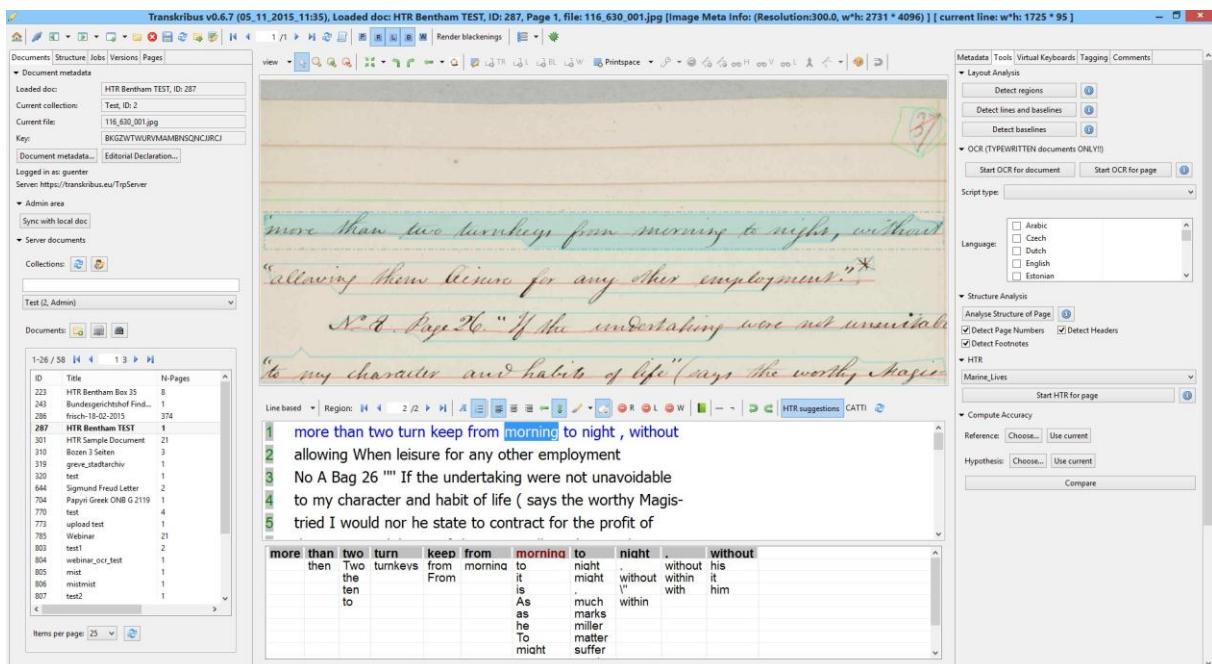 Transkribus v0.6.7 (05_11_2015_11:35), Loaded doc: HTR Bentham TEST, ID: 287, Page 1, file: 116_630_001.jpg [Image Meta Info: (Resolution:300.0, w*h: 2731 * 4096) ] [ current line: w*h: 1725 * 95 ]
1 /1 Render blackenings
Documents Structure Jobs Versions Pages
Document metadata
Loaded doc: HTR Bentham TEST, ID: 287
Current collection: Test, ID: 2
Current file: 116_630_001.jpg
Key: BKGZWTWURVMAMBNSQNCJJRCJ
Document metadata... Editorial Declaration...
Logged in as: guenter
Server: https://transkribus.eu/TrpServer
Admin area
Sync with local doc
Server documents
Collections:
Test (2, Admin)
Documents:
1-26 / 58 1 3
ID Title N-Pages
223 HTR Bentham Box 35 8
243 Bundesgerichtshof Find... 1
286 frisch-18-02-2015 374
287 HTR Bentham TEST 1
301 HTR Sample Document 21
310 Bozen 3 Seiten 3
319 greve_stadtarchiv 1
320 test 1
644 Sigmund Freud Letter 2
704 Papyri Greek ONB G 2119 1
770 test 4
773 upload test 1
785 Webinar 21
803 test1 2
804 webinar_ocr_test 1
805 mist 1
806 mistmist 1
807 test2 1
Items per page: 25
view TR L BL W Printspace H V L
"more than two turnkeys from morning to night, without
"allowing them leisure for any other employment."*
No 8. Page 26. "If the undertaking were not
"to my character and habits of life" (says the worthy Magis
Line based Region: 2 /2 R L W HTR suggestions CATTI
1 more than two turn keep from morning to night , without
2 allowing When leisure for any other employment
3 No A Bag 26 "" If the undertaking were not unavoidable
4 to my character and habit of life ( says the worthy Magis-
5 tried I would nor he state to contract for the profit of
more than two turn keep from morning to night , without
then Two turnkeys from morning to night . without his
the From it might without within it
ten is , \" with him
to As much within
as marks
he miller
To matter
might suffer
Metadata Tools Virtual Keyboards Tagging Comments
Layout Analysis
Detect regions
Detect lines and baselines
Detect baselines
OCR (TYPEWRITTEN documents ONLY!!)
Start OCR for document Start OCR for page
Script type:
Language:
Arabic
Czech
Dutch
English
Estonian
Structure Analysis
Analyse Structure of Page
Detect Page Numbers Detect Headers
Detect Footnotes
HTR
Marine_Lives
Start HTR for page
Compute Accuracy
Reference: Choose... Use current
Hypothesis: Choose... Use current
Compare